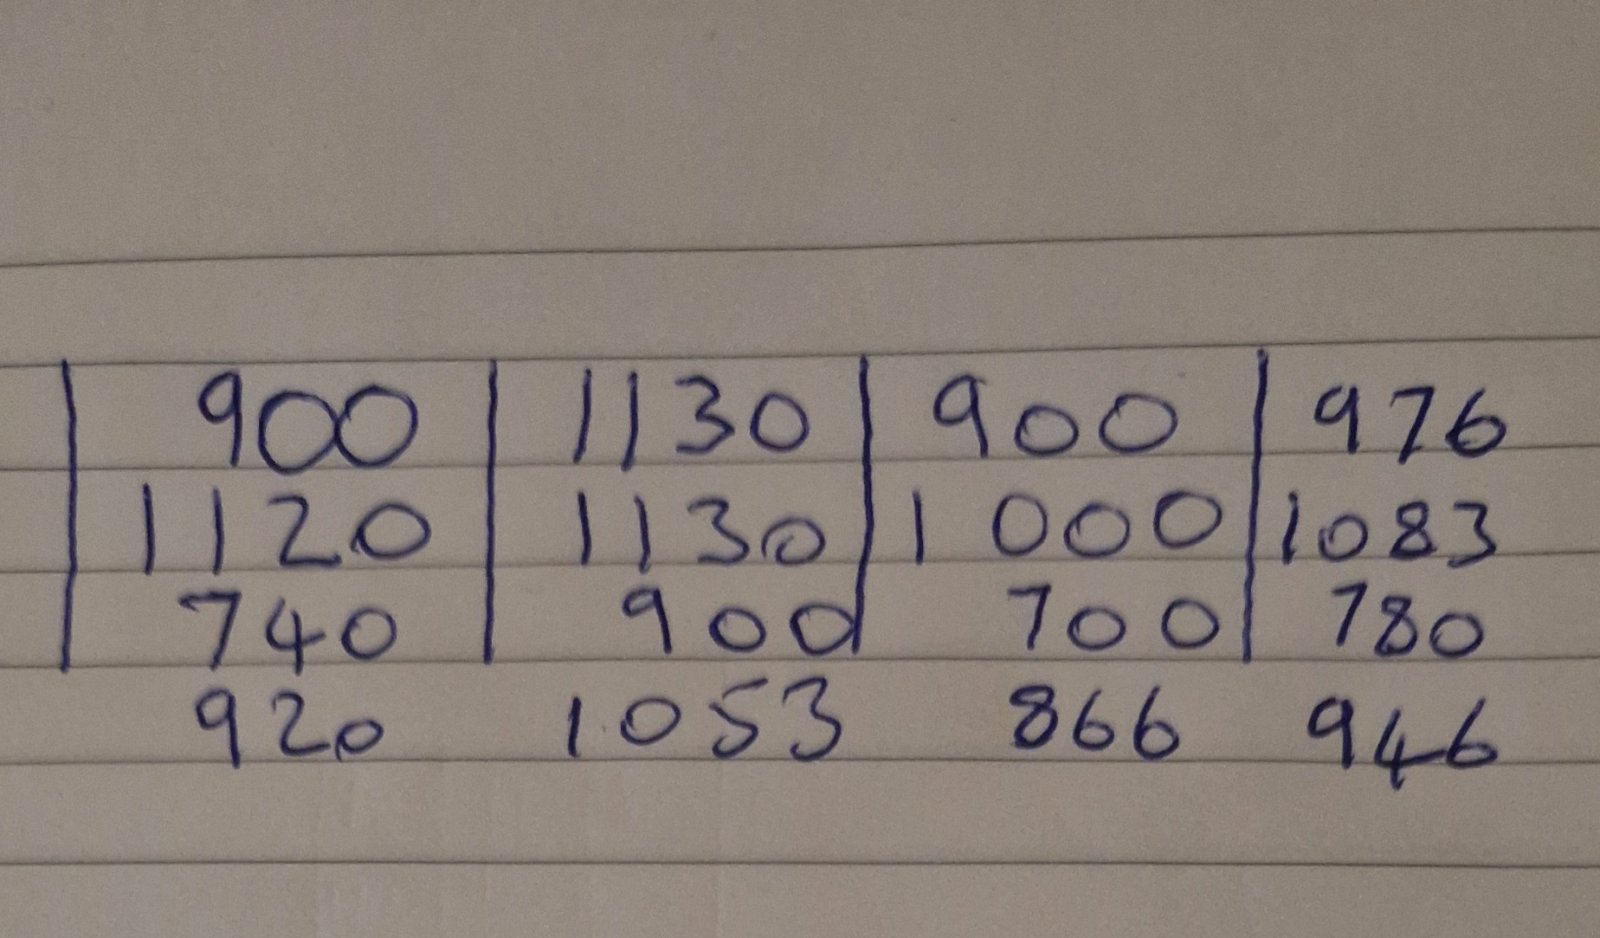 | 900 | 1130 | 900 | 976
| 1120 | 1130 | 1000 | 1083
| 740 | 900 | 700 | 780
920 1053 866 946